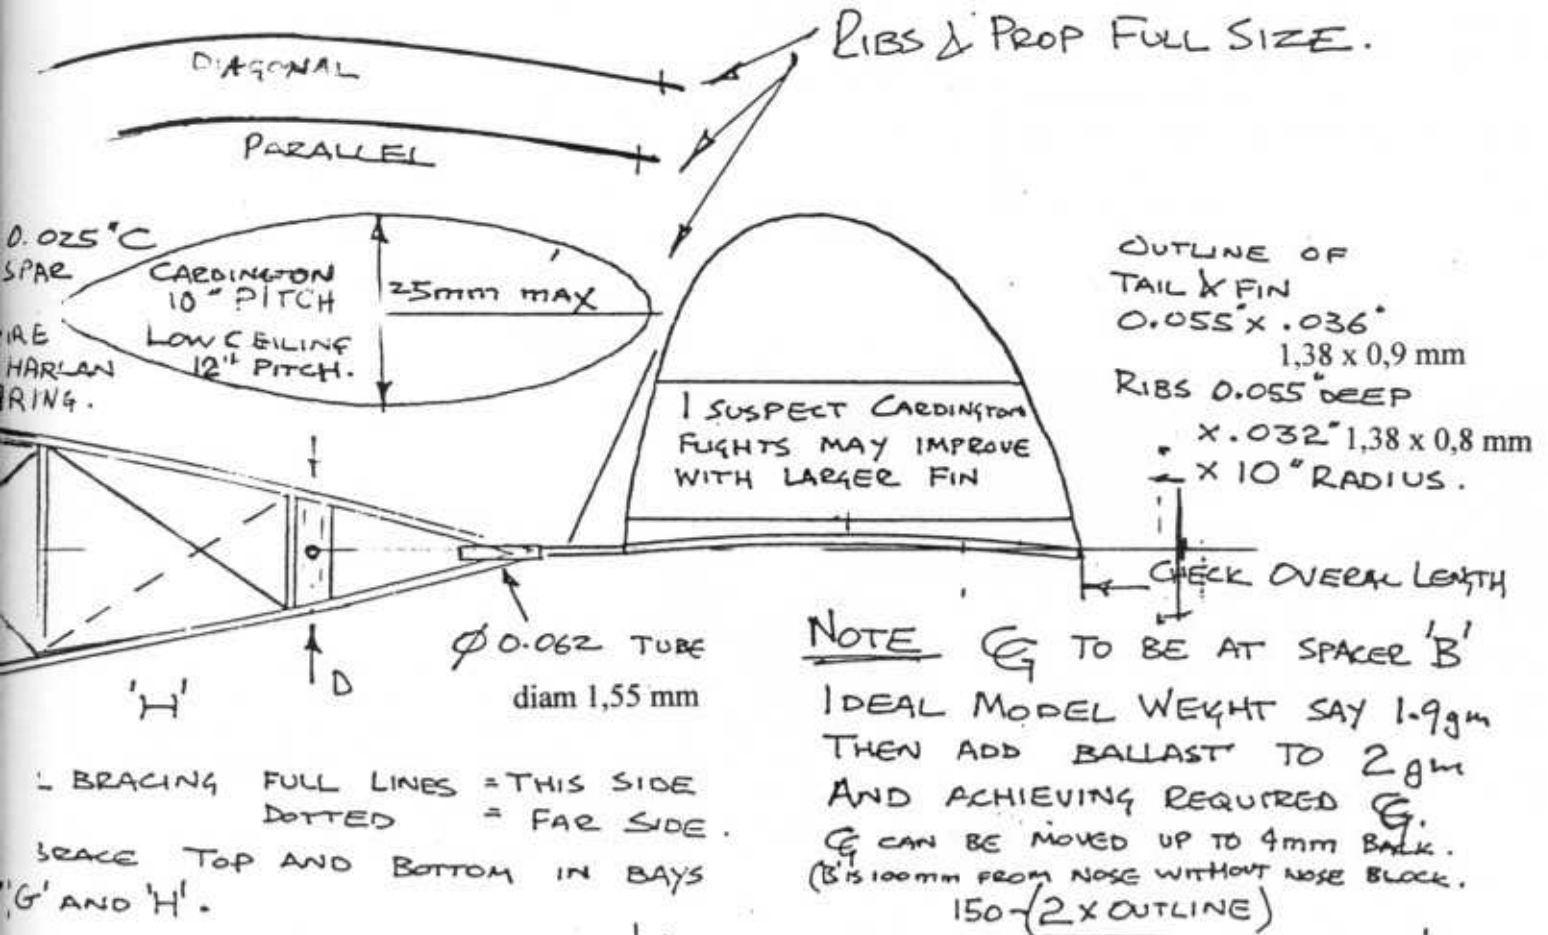 RIBS & PROP FULL SIZE.
DIAGONAL
PARALLEL
0.025"C
SPAR
CARDINGTON
10" PITCH
25mm MAX
LOW CEILING
12" PITCH.
IRE
HARLAN
RING.
OUTLINE OF
TAIL & FIN
0.055"x .036"
1,38 x 0,9 mm
RIBS 0.055" DEEP
x .032" 1,38 x 0,8 mm
x 10" RADIUS.
I SUSPECT CARDINGTON
FLIGHTS MAY IMPROVE
WITH LARGER FIN
CHECK OVERAL LENGTH
Ø 0.062 TUBE
diam 1,55 mm
'H'
D
NOTE CG TO BE AT SPACER 'B'
IDEAL MODEL WEIGHT SAY 1.9gm
THEN ADD BALLAST TO 2gm
AND ACHIEVING REQUIRED CG.
CG CAN BE MOVED UP TO 4mm BACK.
('B' IS 100mm FROM NOSE WITHOUT NOSE BLOCK.
150-(2 x OUTLINE)
BRACING FULL LINES = THIS SIDE
DOTTED = FAR SIDE.
BRACE TOP AND BOTTOM IN BAYS
'G' AND 'H'.